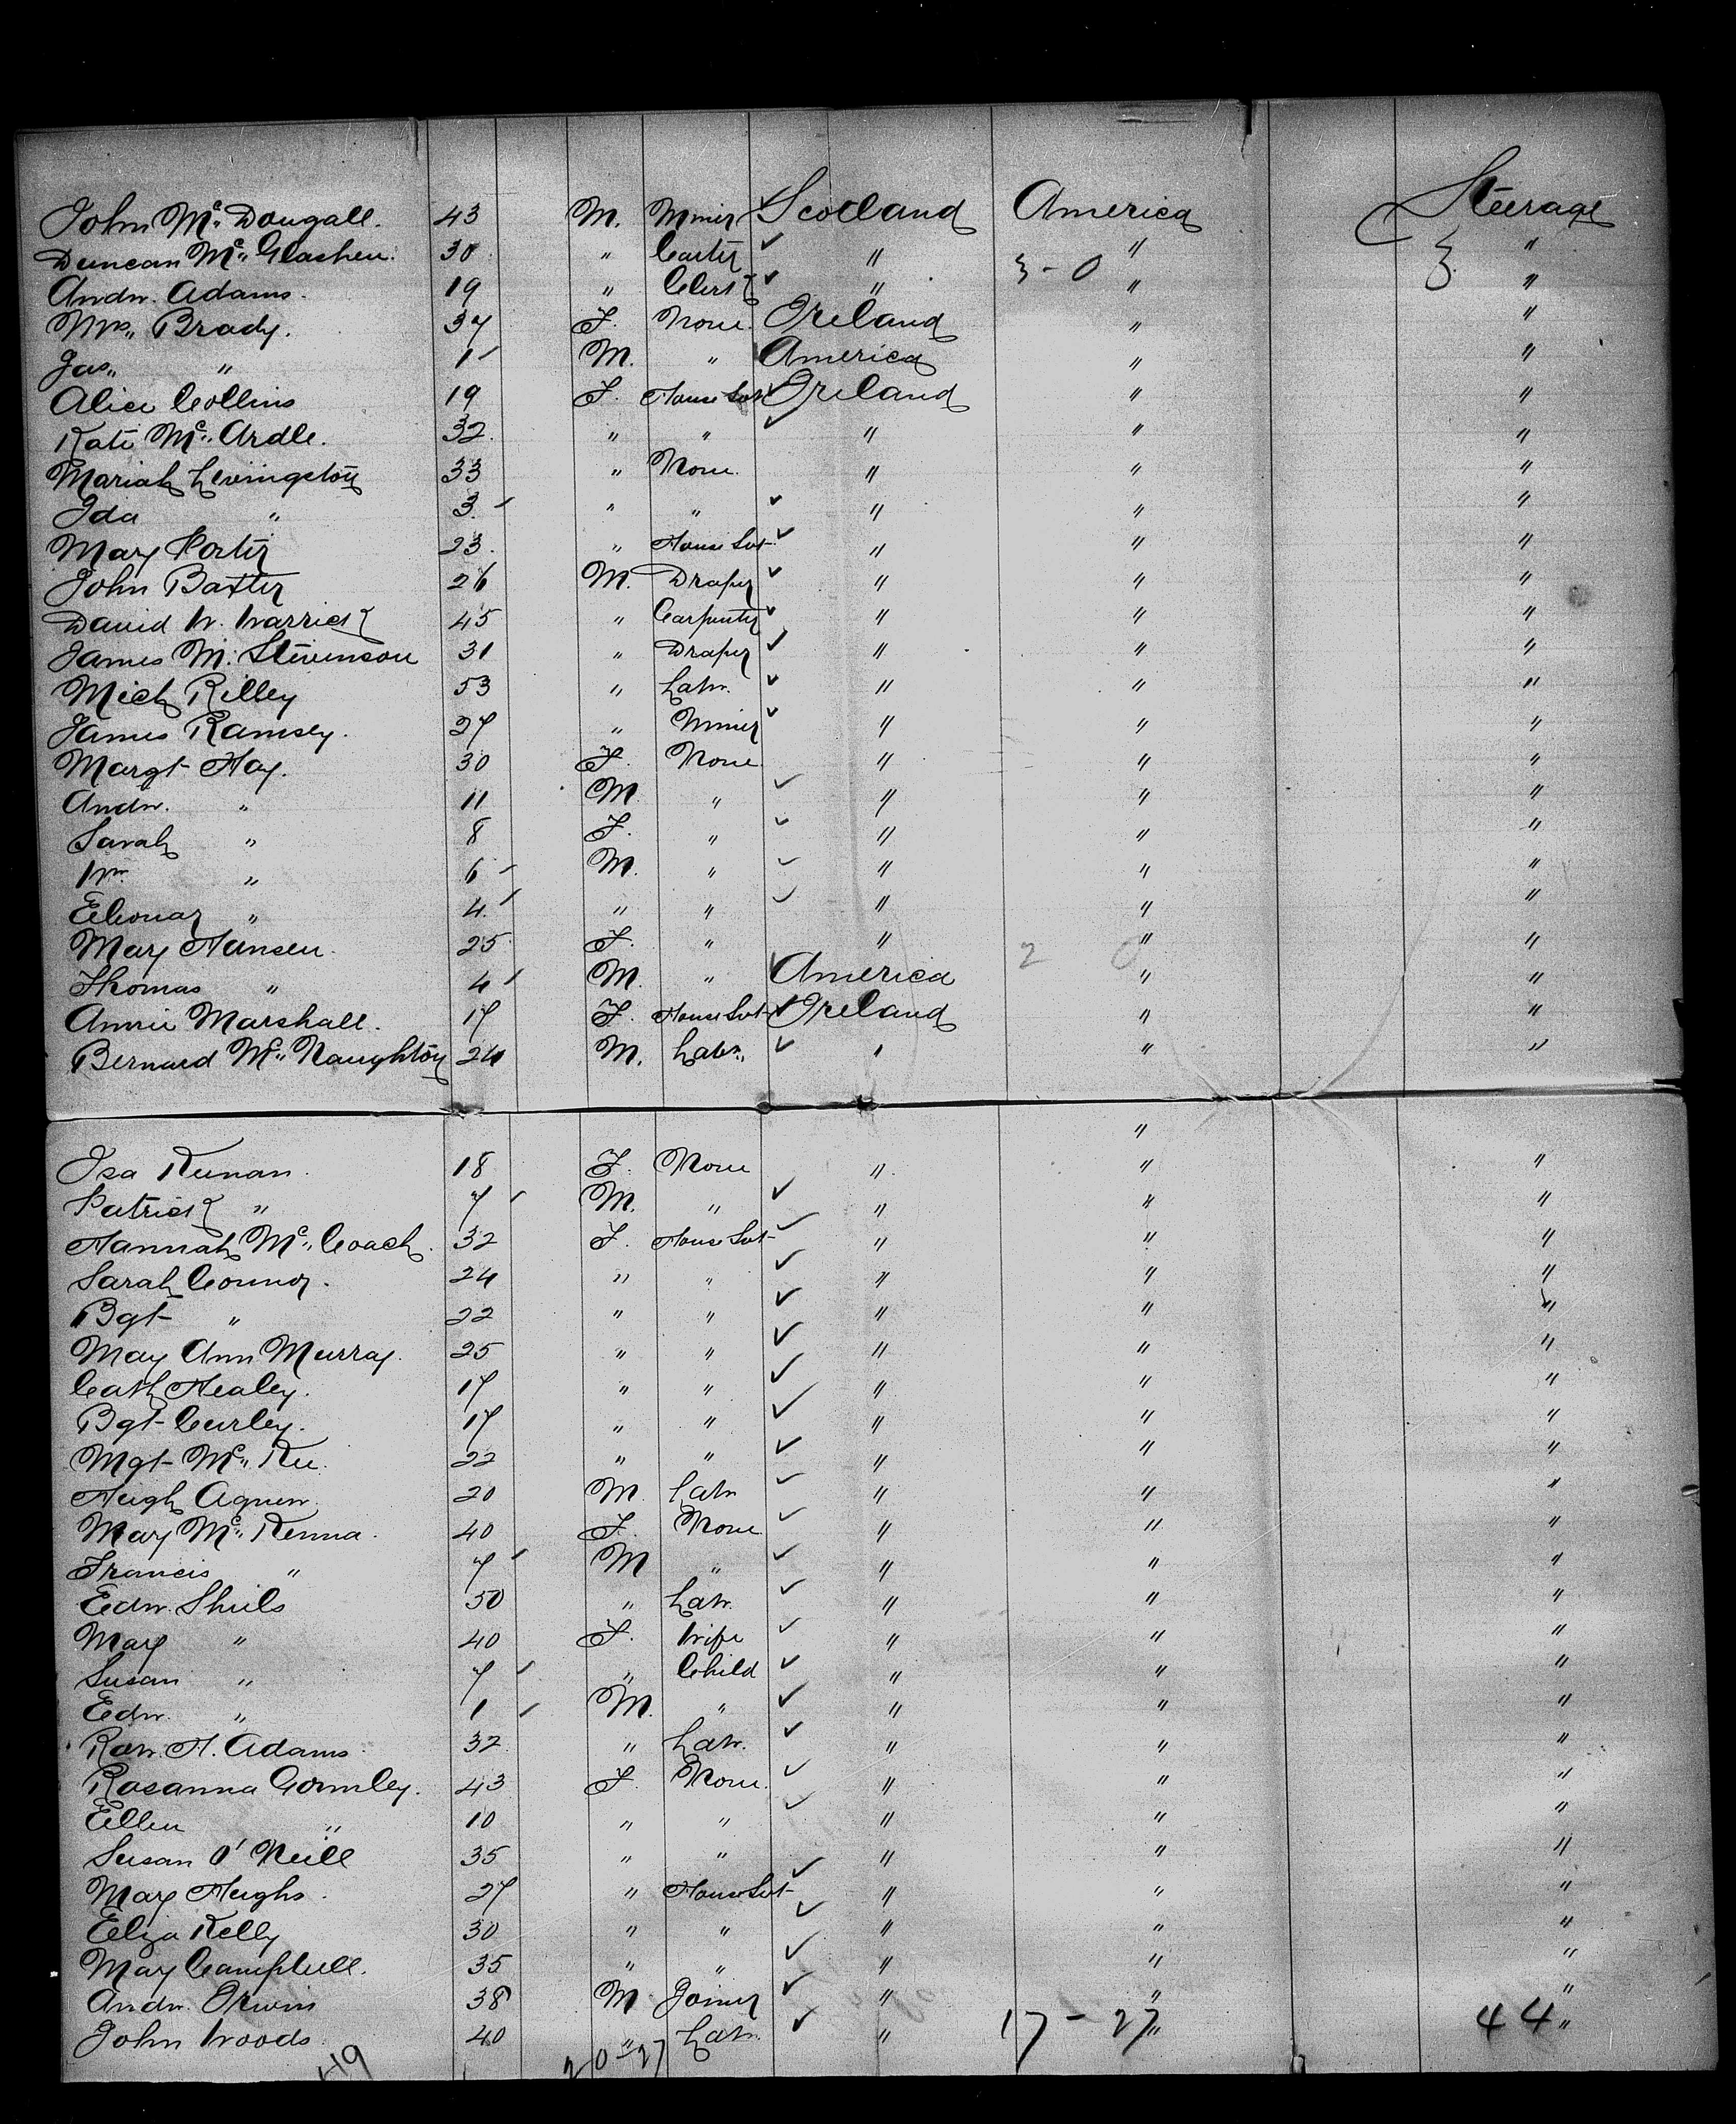 John Mc Dougall. 43 M. Miner Scotland America Steerage
Duncan Mc Glashen. 30 " Carter " " "
3-0 3
Andw. Adams. 19 " Clerk " " "
Mrs. Brady. 37 F. None. Ireland " "
Jas. " 1 M. " America " "
Alice Collins 19 F. House Svt Ireland " "
Kate Mc Ardle. 32. " " " " "
Mariah Livingston 33 " None. " " "
Ida " 3. " " " " "
Mary Porter 23. " House Svt. " " "
John Baxter 26 M. Draper " " "
David W. Warrick 45 " Carpenter " " "
James M. Stevenson 31 " Draper " " "
Mich Rilley 53 " Labr. " " "
James Ramsey. 27 " Miner " " "
Margt Hay. 30 F. None " " "
Andw. " 11 M. " " " "
Sarah " 8 F. " " " "
Wm. " 6 M. " " " "
Eleonar " 4. " " " " "
Mary Hansen. 25 F. " " " "
2 0
Thomas " 4 M. " America " "
Annie Marshall. 17 F. House Svt Ireland " "
Bernard Mc Naughton 24 M. Labr. " " "
"
Isa Keenan. 18 F. None " " "
Patrick " 7 M. " " " "
Hannah Mc Coach. 32 F. House Svt " " "
Sarah Connor. 24 " " " " "
Bgt " 22 " " " " "
May Ann Murray. 25 " " " " "
Cath Healey. 17 " " " " "
Bgt Curley. 17 " " " " "
Mgt Mc Kee. 22 " " " " "
Hugh Agnew. 20 M. Labr " " "
Mary Mc Kenna. 40 F. None " " "
Francis " 7 M " " " "
Edw. Shiels 50 " Labr. " " "
Mary " 40 F. Wife " " "
Susan " 7 " Child " " "
Edw. " 1 M. " " " "
Robt. H. Adams. 32 " Labr. " " "
Rosanna Gormley. 43 F. None. " " "
Ellen " 10 " " " " "
Susan O'Neill 35 " " " " "
Mary Hughs. 27 " House Svt " " "
Eliza Kelly 30 " " " " "
May Campbell. 35 " " " " "
Andw. Orwin 38 M Joiner " " "
John Woods 40 " Labr. " 17 - 27 " 44 "
49 20-27